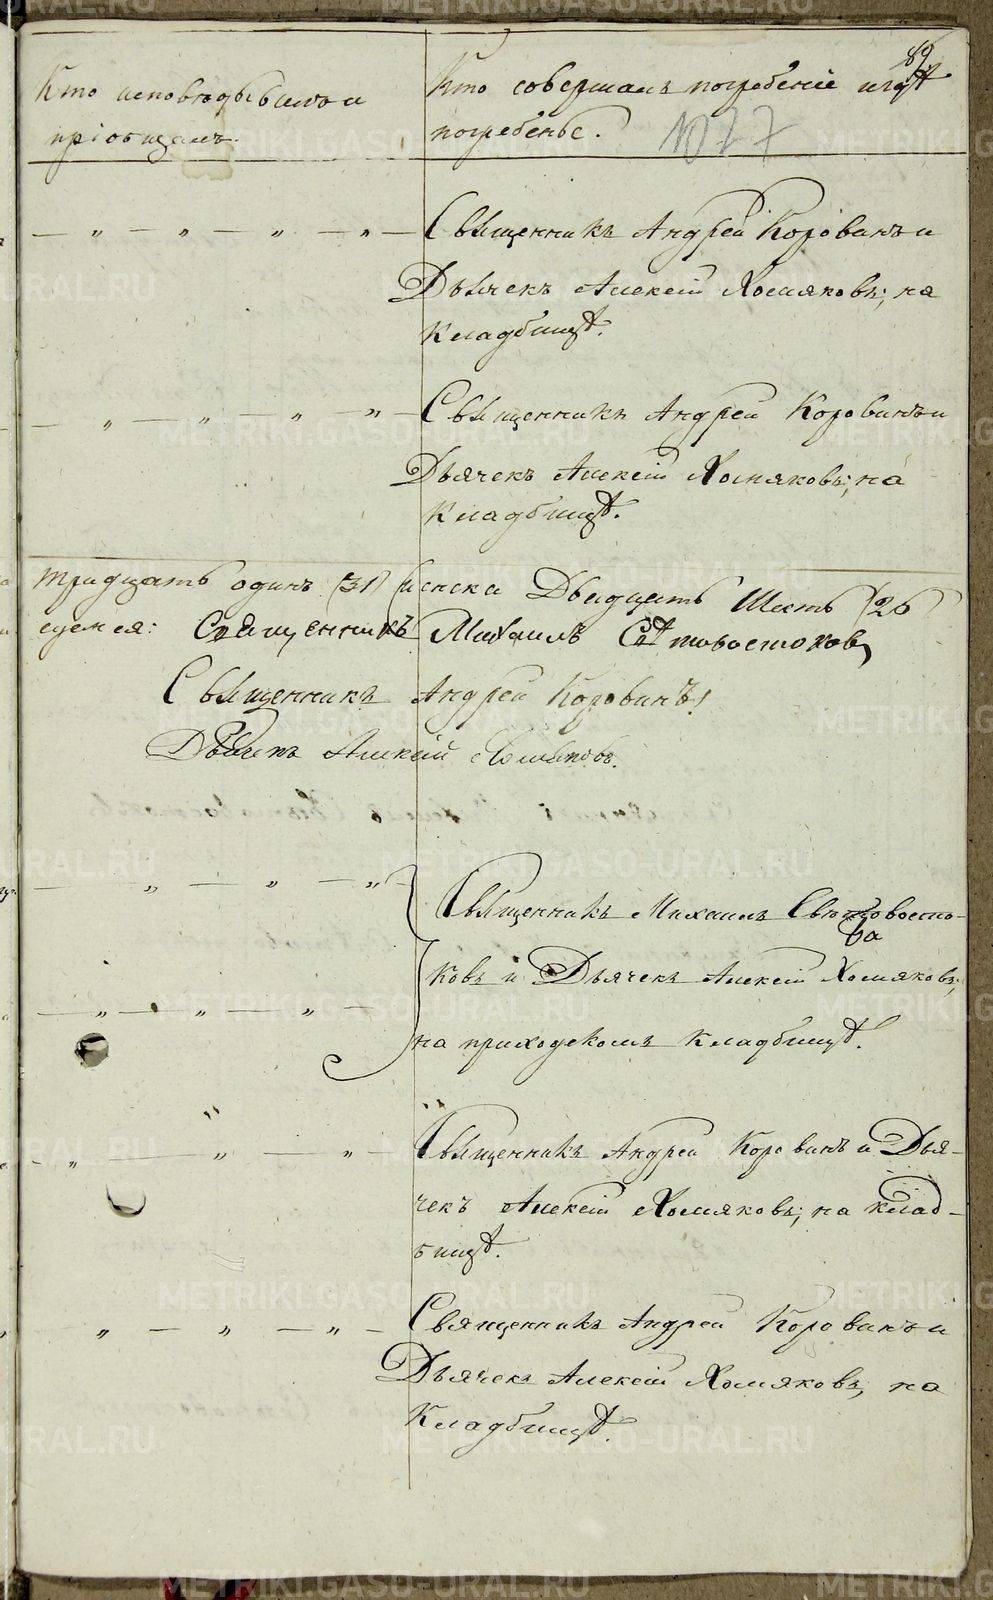 89
Кто исповѣдывалъ и
пріобщалъ.
Кто совершалъ погребеніе и гдѣ
погребены.
1077
— „ — „ — „ — „ — Священникъ Андрей Коровинъ и
Дьячекъ Алексій Хомяковъ; на
Кладбищѣ.
— „ — „ — „ — „ — Священникъ Андрей Коровинъ и
Дьячекъ Алексій Хомяковъ; на
Кладбищѣ.
тридцать одинъ (31) женска Двадцать Шесть (26)
Священникъ Михаилъ Свѣтовостоковъ
Священникъ Андрей Коровинъ
Дьячекъ Алексій Хомяковъ.
— „ — „ — „ Священникъ Михаилъ Свѣтовосто-
ковъ и Дьячекъ Алексій Хомяковъ;
— „ — „ — „ —
на приходскомъ Кладбищѣ.
— „ — „ — „ — Священникъ Андрей Коровинъ и Дья-
чекъ Алексій Хомяковъ; на клад-
бищѣ.
„ — „ — „ — „ — Священникъ Андрей Коровинъ и
Дьячекъ Алексій Хомяковъ, на
Кладбищѣ.
METRIKI.GASO-URAL.RU